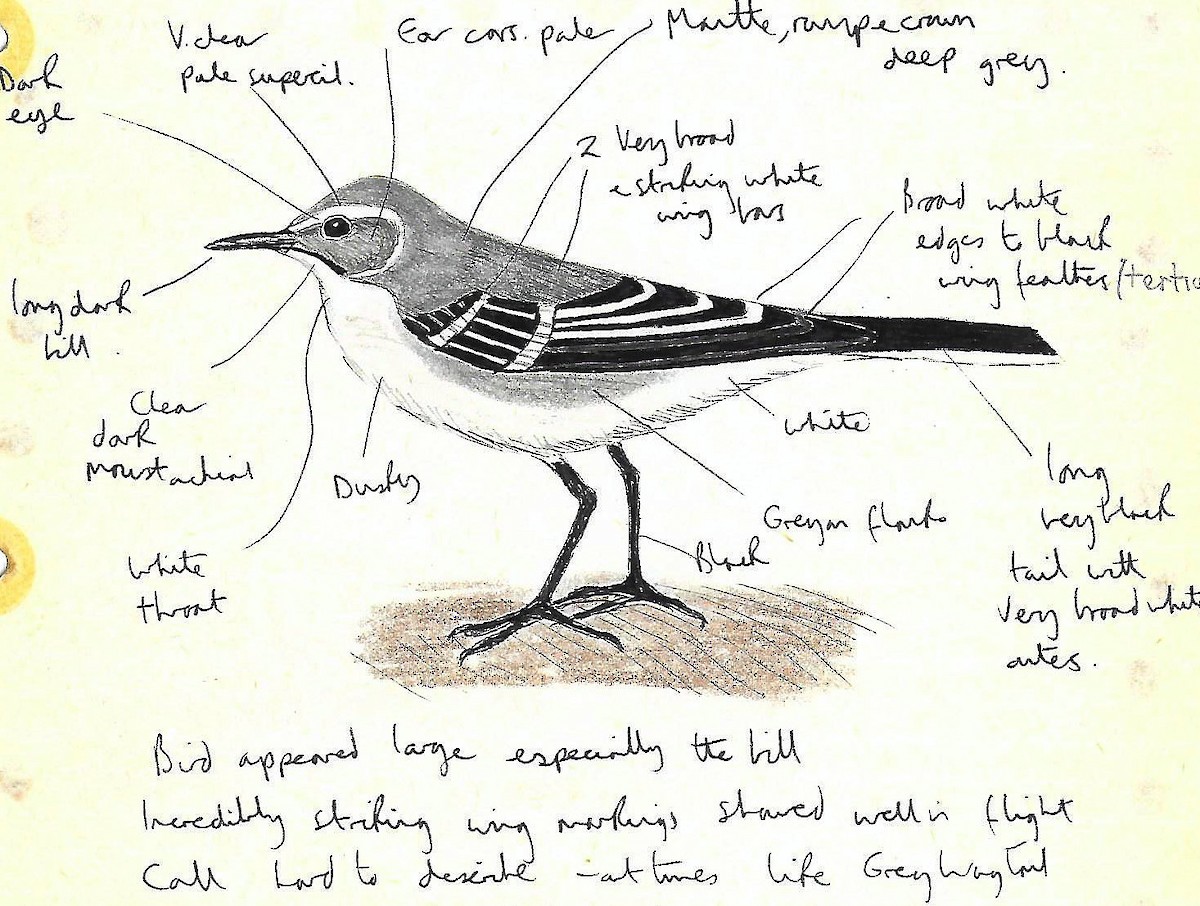 V. clear
pale supercil.
Ear covs. pale
Mantle, rump & crown
deep grey.
Dark
eye
2 Very broad
& striking white
wing bars
Broad white
edges to black
wing feather/tertia
long dark
bill.
Clear
dark
moustachial
Dusky
white
Greyer flanks
Black
White
throat
long
very black
tail with
very broad white
outes.
Bird appeared large especially the bill
Incredibly striking wing markings showed well in flight
Call hard to describe - at times like Grey Wagtail